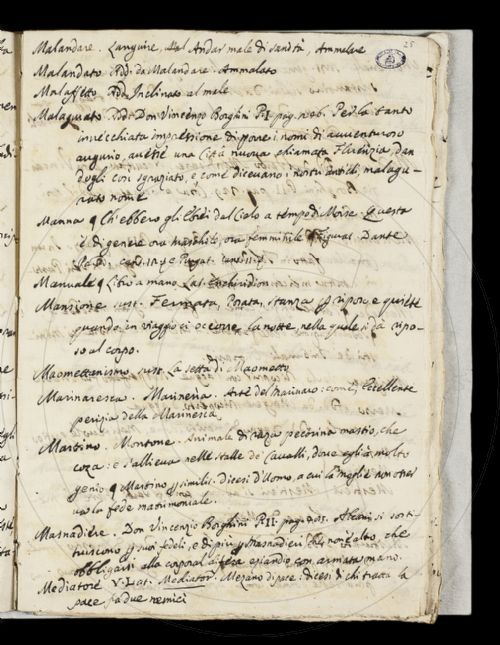 25
Malandare. Languire, dal Andar male di sanità, Ammalare
Malandato Add. da Malandare. Ammalato
Malaffetto Add. Inclinato al male
Malaguato Add. Don Vincenzo Borghini P.I. pag. Per la tanto
invecchiata impressione di porre i nomi di avventuroso
augurio, avere una Città nuova chiamata Flurenzia, dan
dogli così sgraziato, e come dicevano i nostri antichi, malagu-
rato nome
Manna Ch'ebbero gli Ebrei dal Cielo a tempo di Moisè. Questa
è di genere ora maschile, ora femminile figurat. Dante
Manuale Libro a mano Lat. Enchiridion
Mansione sust. Fermata, Posata, stanza riposo, e quiete
quando in viaggio si occorre la notte, nella quale si dà ripo-
so al corpo.
Maomettanismo, sust. La setta di Maometto
Marinaresca. Marineria. Arte del marinaro: come, Eccellente
perizia della Marinesca
Martino. Montone. Animale di razza pecorina mastio, che
coza: e s'allieva nelle stalle de' Cavalli, dove egli à molto
genio Martino similit. dicesi d'Uomo, a cui la moglie non osser
va la fede matrimoniale.
Masnadiere. Don Vincenzio Borghini P.II. pag. Alcuni si sosti
tuiscono suoi fedeli, e di più Masnadieri nome alto, che
obbligavasi alla corporal difesa eziandio con armata mano.
Mediatore V. Lat. Mediator. Mezano di pace: dicesi di chi tratta la
pace fra due nemici